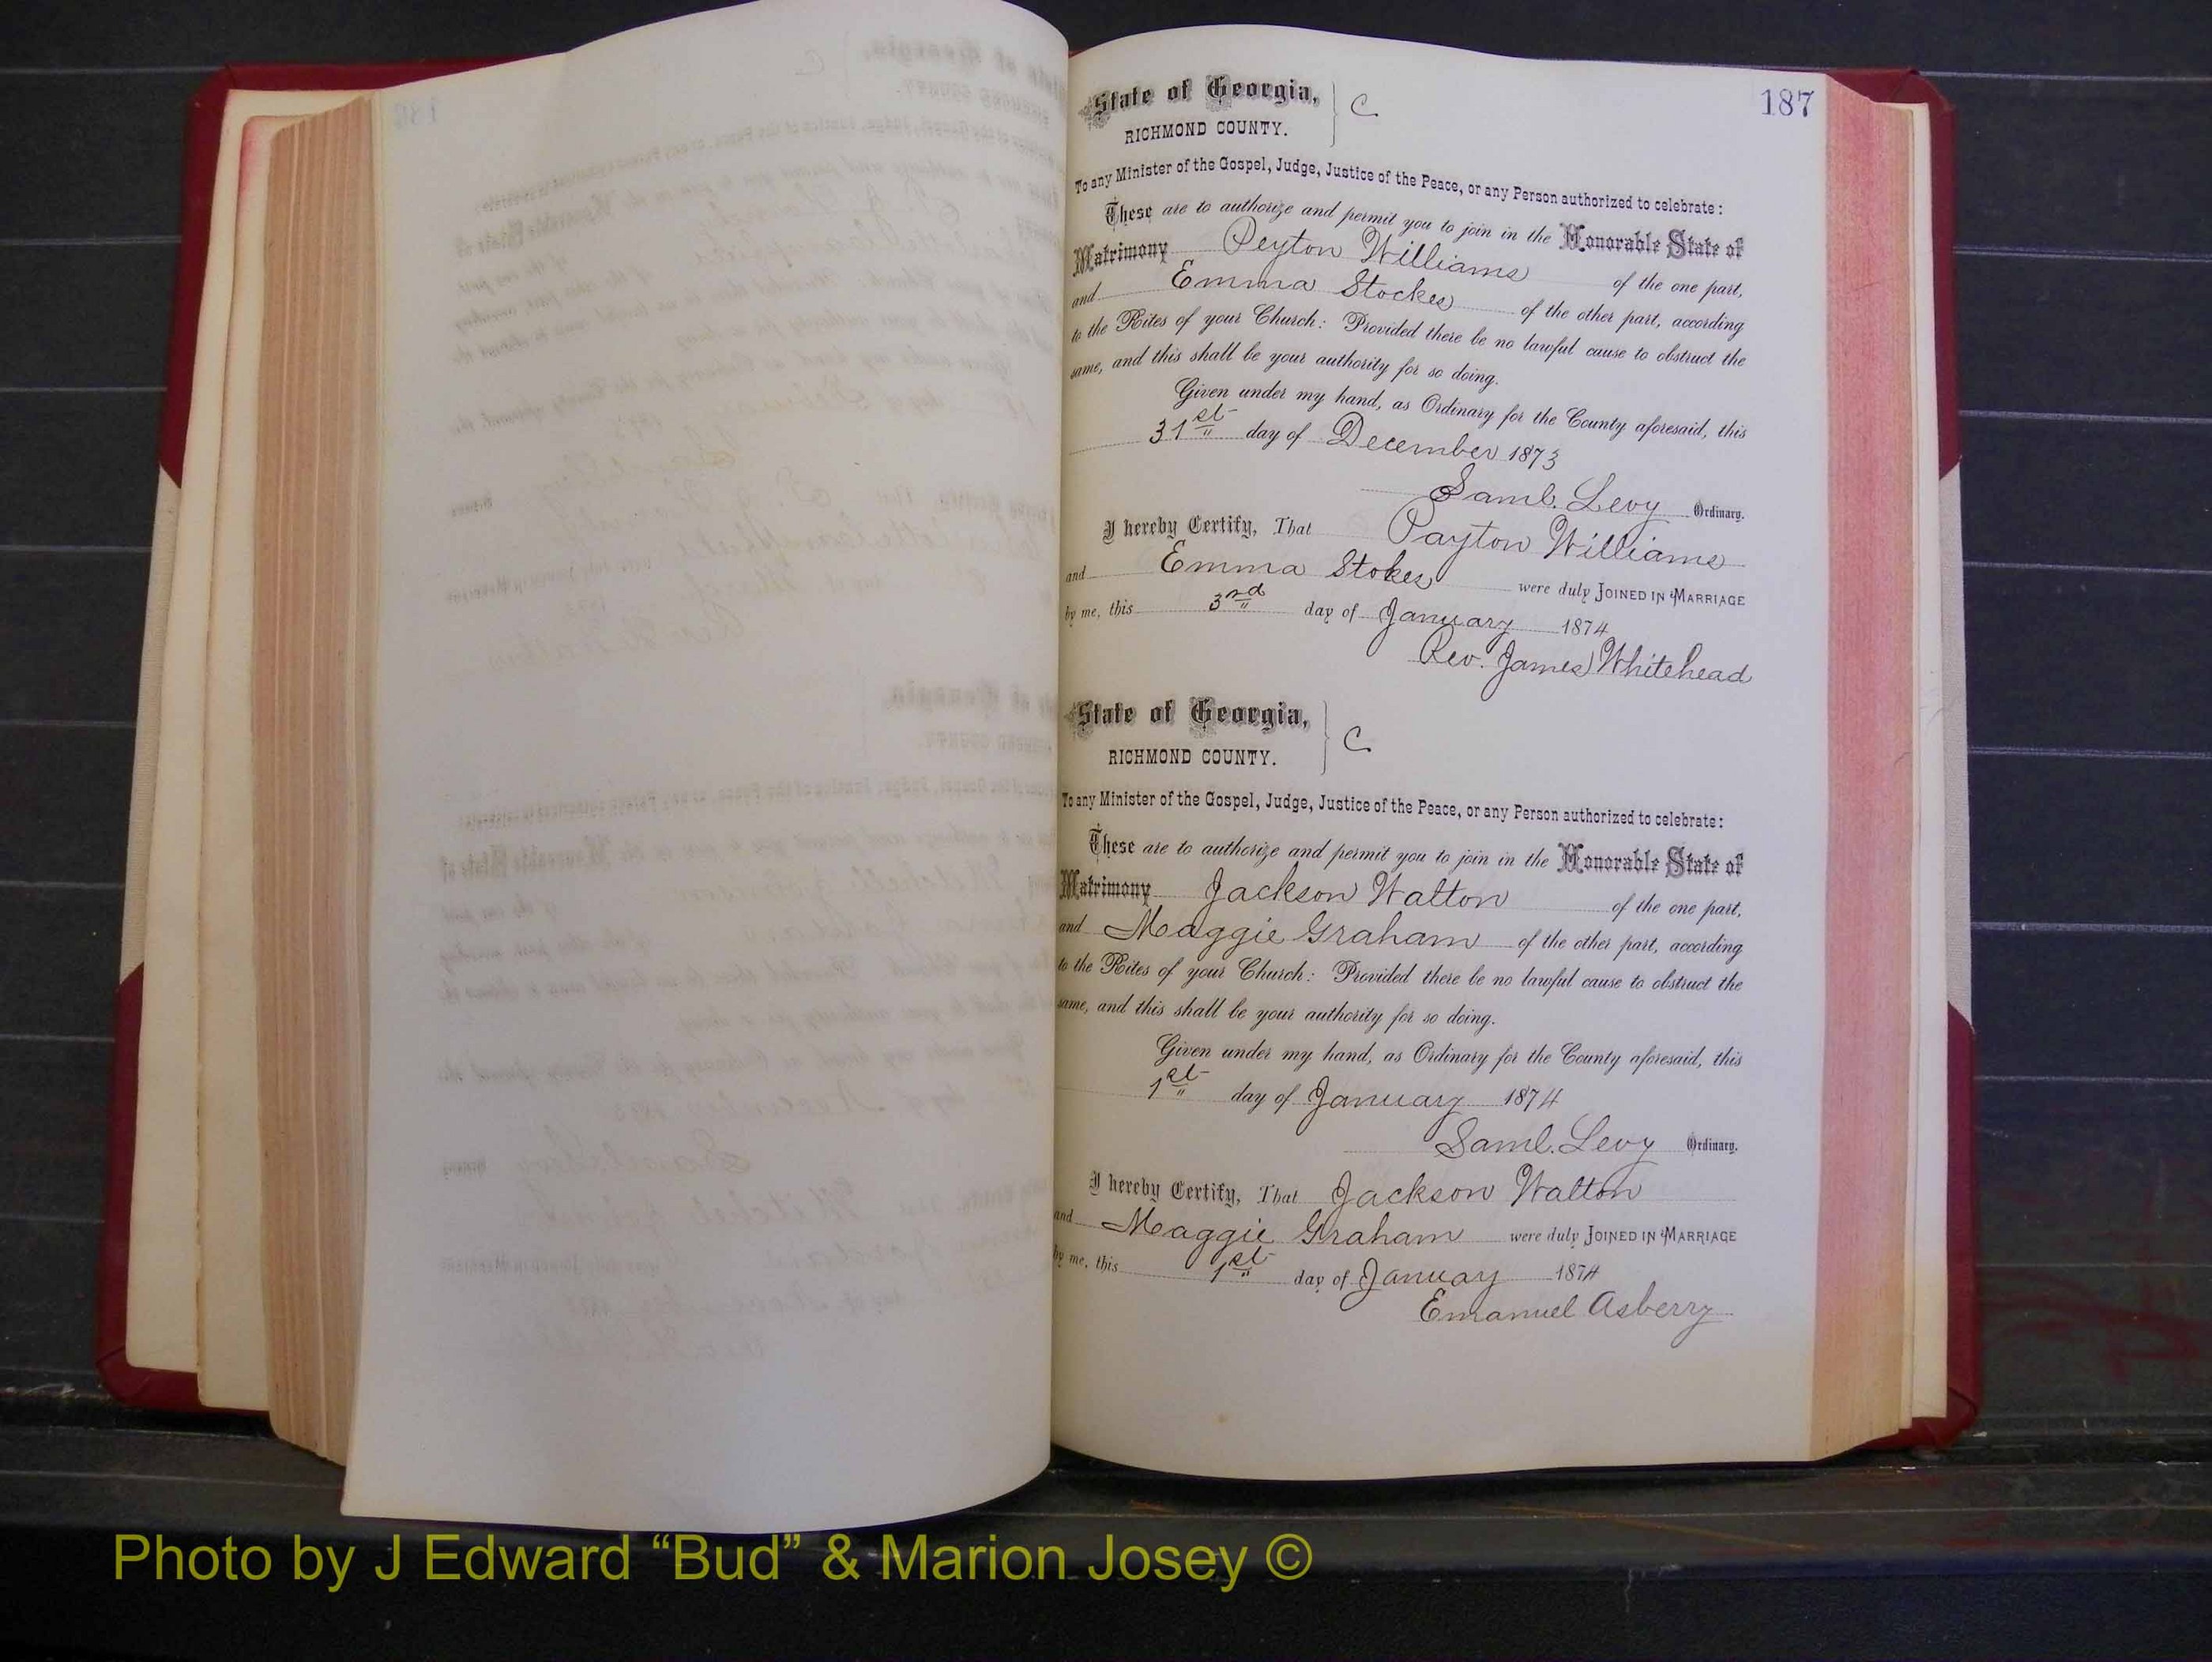 187
State of Georgia,
RICHMOND COUNTY.
C
To any Minister of the Gospel, Judge, Justice of the Peace, or any Person authorized to celebrate:
These are to authorize and permit you to join in the Honorable State of
Matrimony Peyton Williams of the one part,
and Emma Stockes of the other part, according
to the Rites of your Church: Provided there be no lawful cause to obstruct the
same, and this shall be your authority for so doing.
Given under my hand, as Ordinary for the County aforesaid, this
31st day of December 1873
Saml. Levy Ordinary.
I hereby Certify, That Payton Williams
and Emma Stokes were duly JOINED IN MARRIAGE
by me, this 3rd day of January 1874
Rev. James Whitehead
State of Georgia,
RICHMOND COUNTY.
C
To any Minister of the Gospel, Judge, Justice of the Peace, or any Person authorized to celebrate:
These are to authorize and permit you to join in the Honorable State of
Matrimony Jackson Walton of the one part,
and Maggie Graham of the other part, according
to the Rites of your Church: Provided there be no lawful cause to obstruct the
same, and this shall be your authority for so doing.
Given under my hand, as Ordinary for the County aforesaid, this
1st day of January 1874
Saml. Levy Ordinary.
I hereby Certify, That Jackson Walton
and Maggie Graham were duly JOINED IN MARRIAGE
by me, this 1st day of January 1874
Emanuel Asberry
Photo by J Edward “Bud” & Marion Josey ©